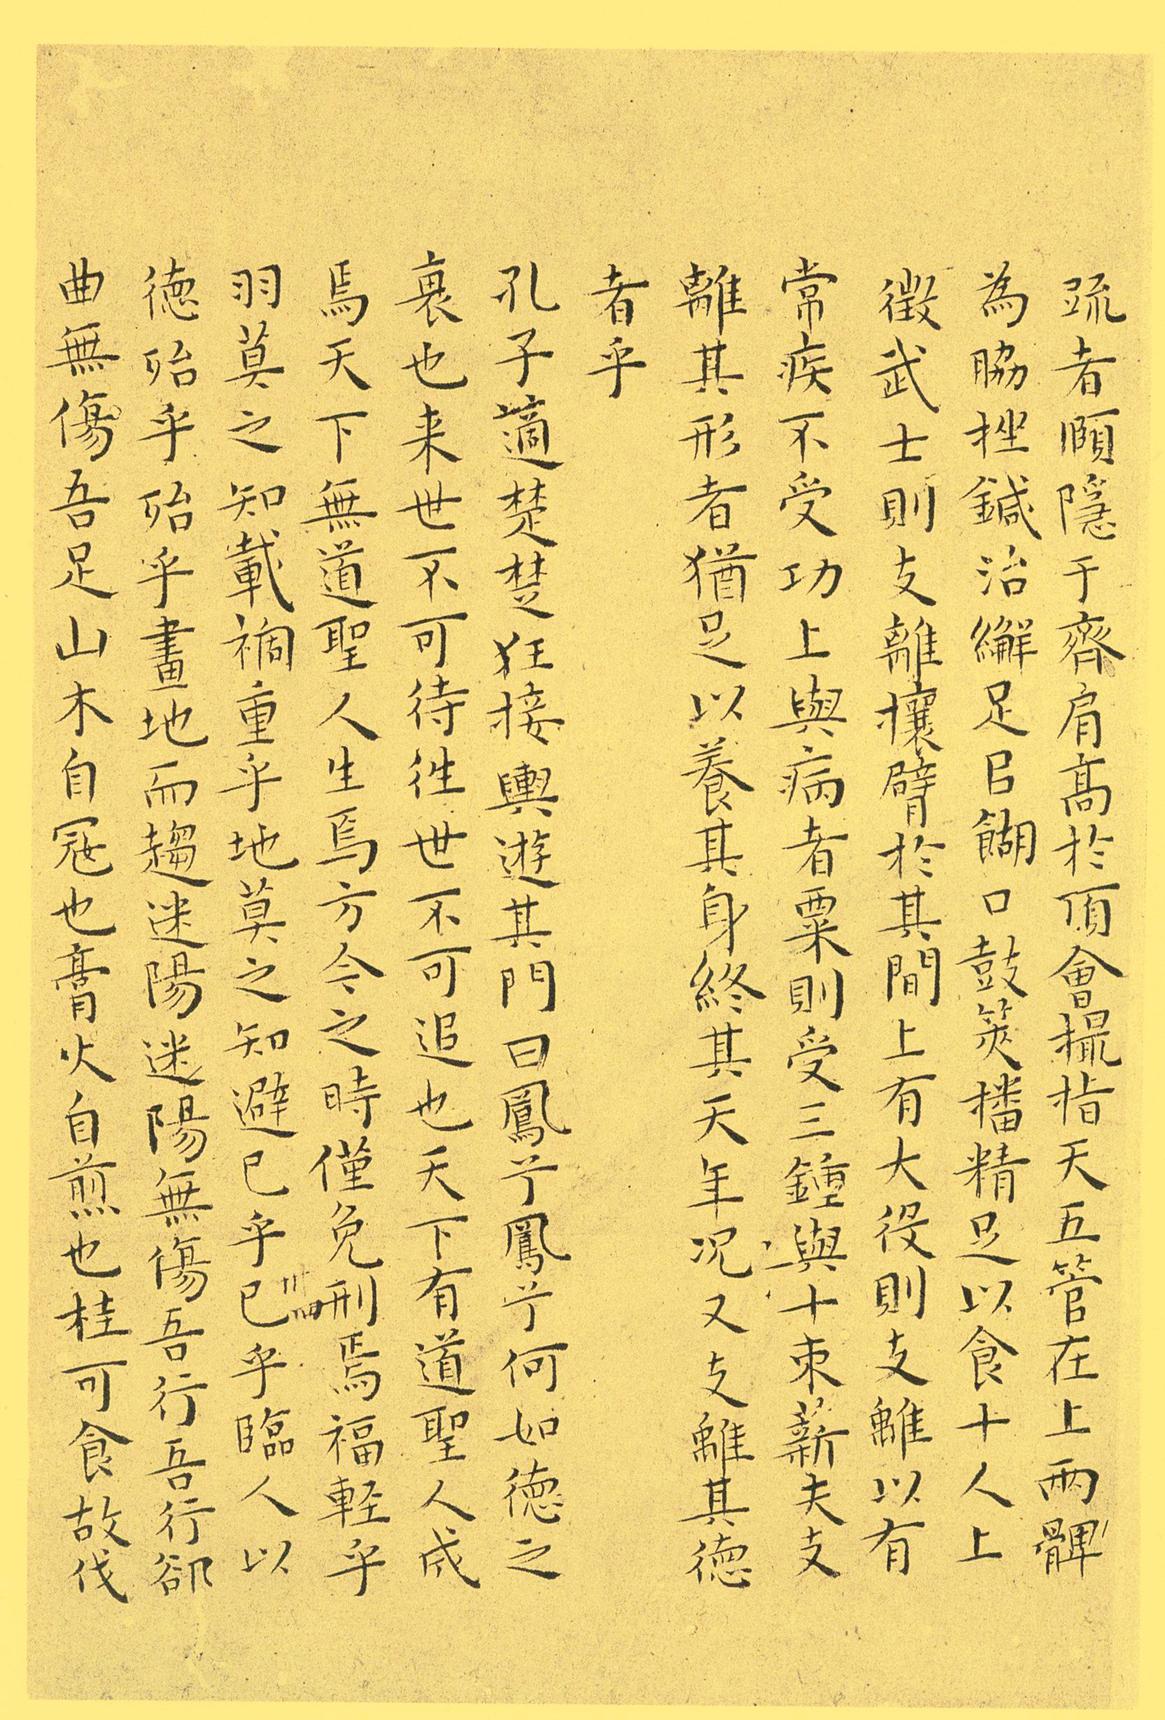 疏者頤隱于齊肩高於頂會撮指天五管在上兩髀
為脇挫鍼治繲足㠯餬口鼓筴播精足以食十人上
徵武士則支離攘臂於其間上有大役則支離以有
常疾不受功上與病者粟則受三鍾與十束薪夫支
離其形者猶足以養其身終其天年況又支離其德
者乎
孔子適楚楚狂接輿遊其門曰鳳兮鳳兮何如德之
衰也来世不可待往世不可追也天下有道聖人成
焉天下無道聖人生焉方今之時僅免刑焉福輕乎
羽莫之知載禍重乎地莫之知避已乎已乎臨人以
德殆乎殆乎畫地而趨迷陽迷陽無傷吾行吾行郤
曲無傷吾足山木自寇也膏火自煎也桂可食故伐